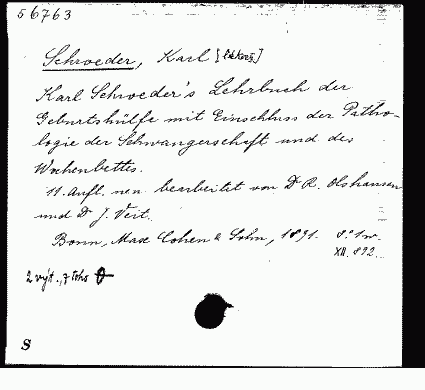 56763
Schroeder, Karl [lékař]
Karl Schroeder's Lehrbuch der
Geburtshülfe mit Einschluss der Patho-
logie der Schwangerschaft und des
Wochenbettes.
11. Aufl. neu bearbeitet von Dr R. Olshausen
und Dr J. Veit.
Bonn, Max Cohen & Sohn, 1891. 8° 1 w.
XII. 892.
2 výt., z toho
S